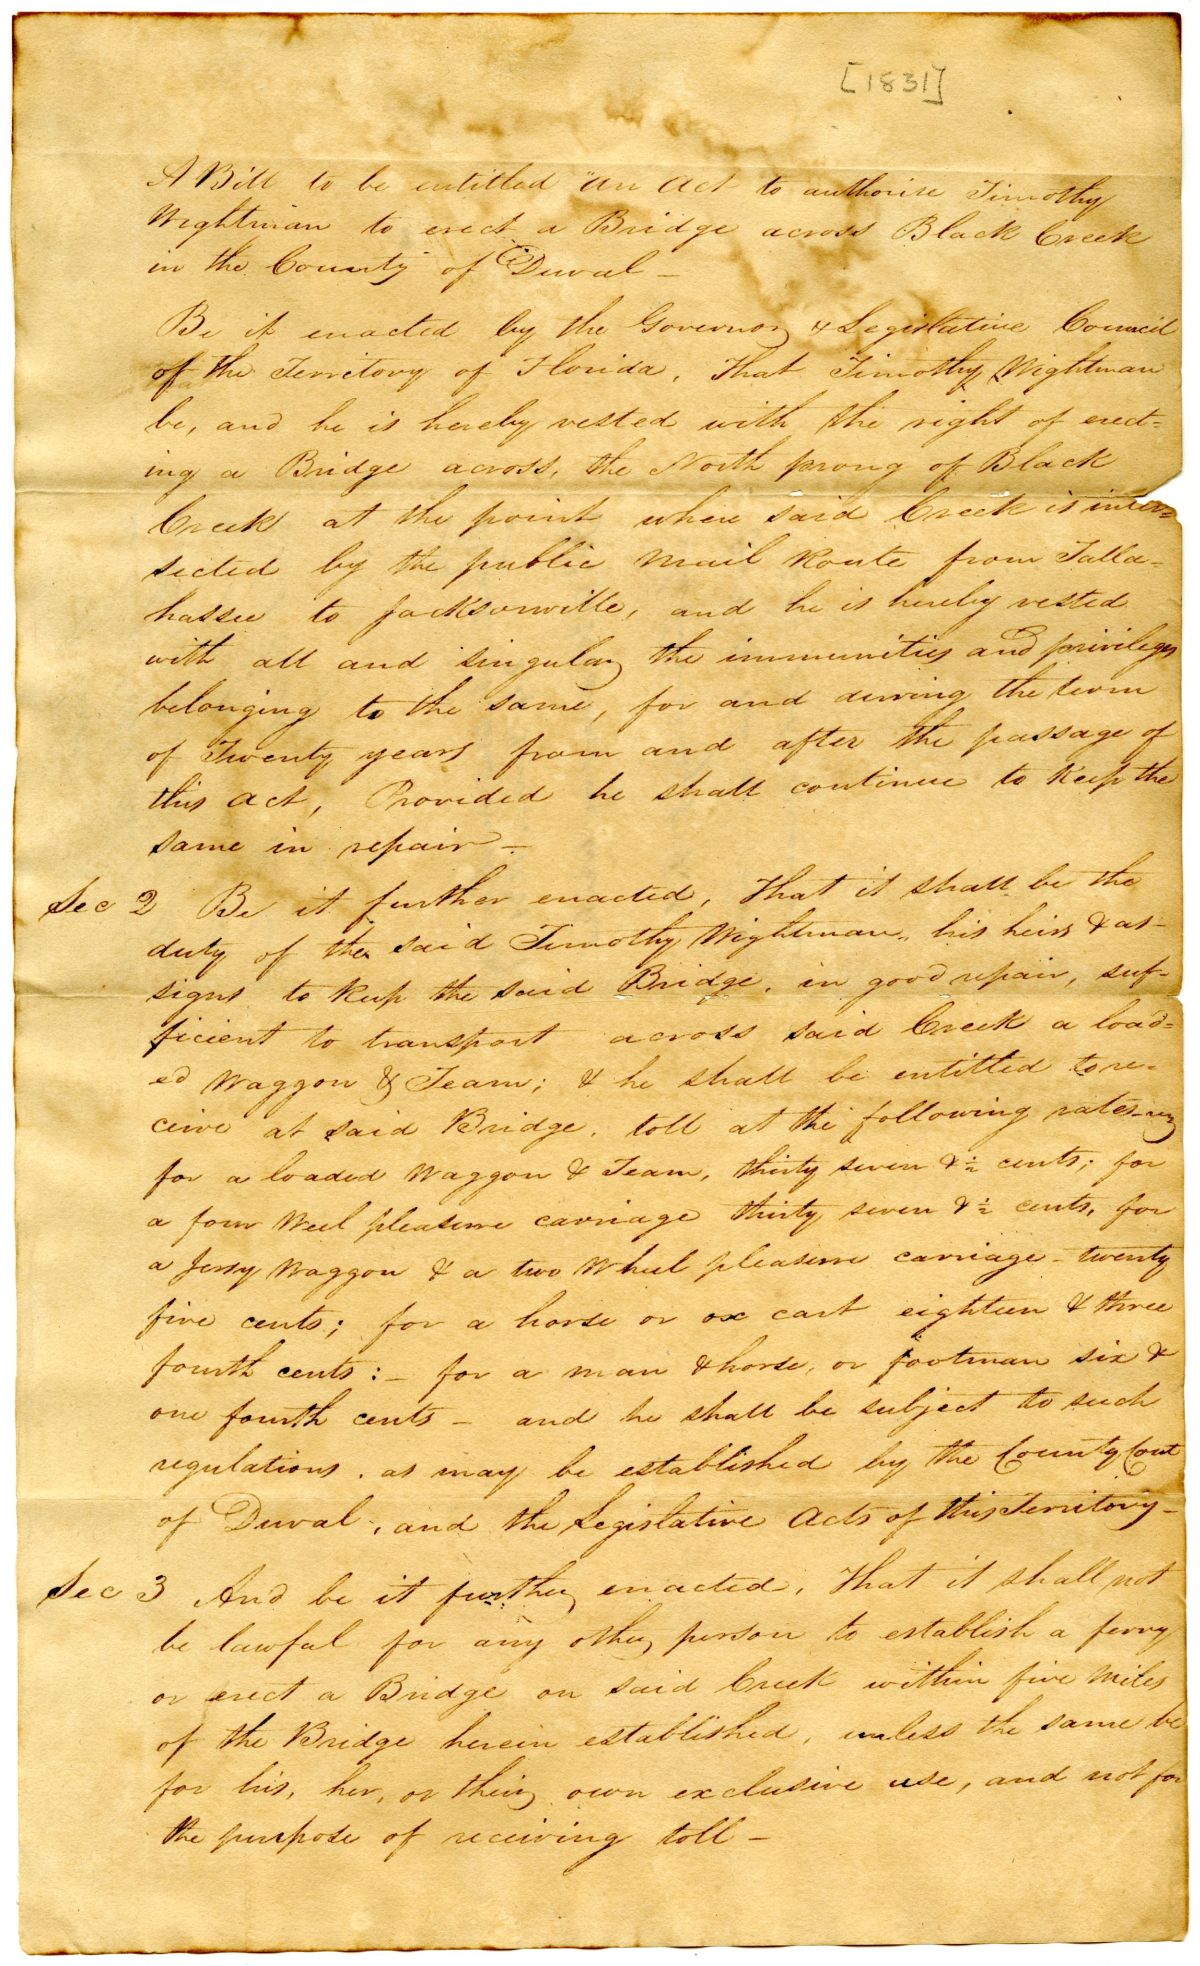 [1831]
A Bill to be entitled "An Act to authorise Timothy
Wightman to erect a Bridge across Black Creek
in the County of Duval -
Be it enacted by the Governor & Legislative Council
of the Territory of Florida, That Timothy Wightman
be, and he is hereby vested with the right of erect=
ing a Bridge across, the North prong of Black
Creek at the point where said Creek is inter=
sected by the public Mail Route from Talla=
hassee to Jacksonville, and he is hereby vested
with all and singular the immunities and privileges
belonging to the same, for and during the term
of Twenty years from and after the passage of
this Act, Provided he shall continue to Keep the
same in repair -
Sec 2 Be it further enacted, That it shall be the
duty of the said Timothy Wightman, his heirs & as-
signs to Keep the said Bridge, in good repair, suf-
ficient to transport across said Creek a load=
ed Waggon & Team; & he shall be entitled to re=
ceive at said Bridge, toll at the following rates
for a loaded Waggon & Team, thirty seven & ½ cents; for
a four Weel pleasure carriage thirty seven & ½ cents, for
a Jersy Waggon & a two Wheel pleasure carriage - twenty
five cents; for a horse or ox cart eighteen & three
fourth cents: - for a man & horse, or footman six &
one fourth cents - and he shall be subject to such
regulations, as may be established by the County Cout
of Duval, and the Legislative Acts of this Territory -
Sec 3 And be it further enacted, That it shall not
be lawful for any other person to establish a ferry
or erect a Bridge on said Creek within five Miles
of the Bridge herein established, unless the same be
for his, her, or their own exclusive use, and not for
the purpose of receiving toll -